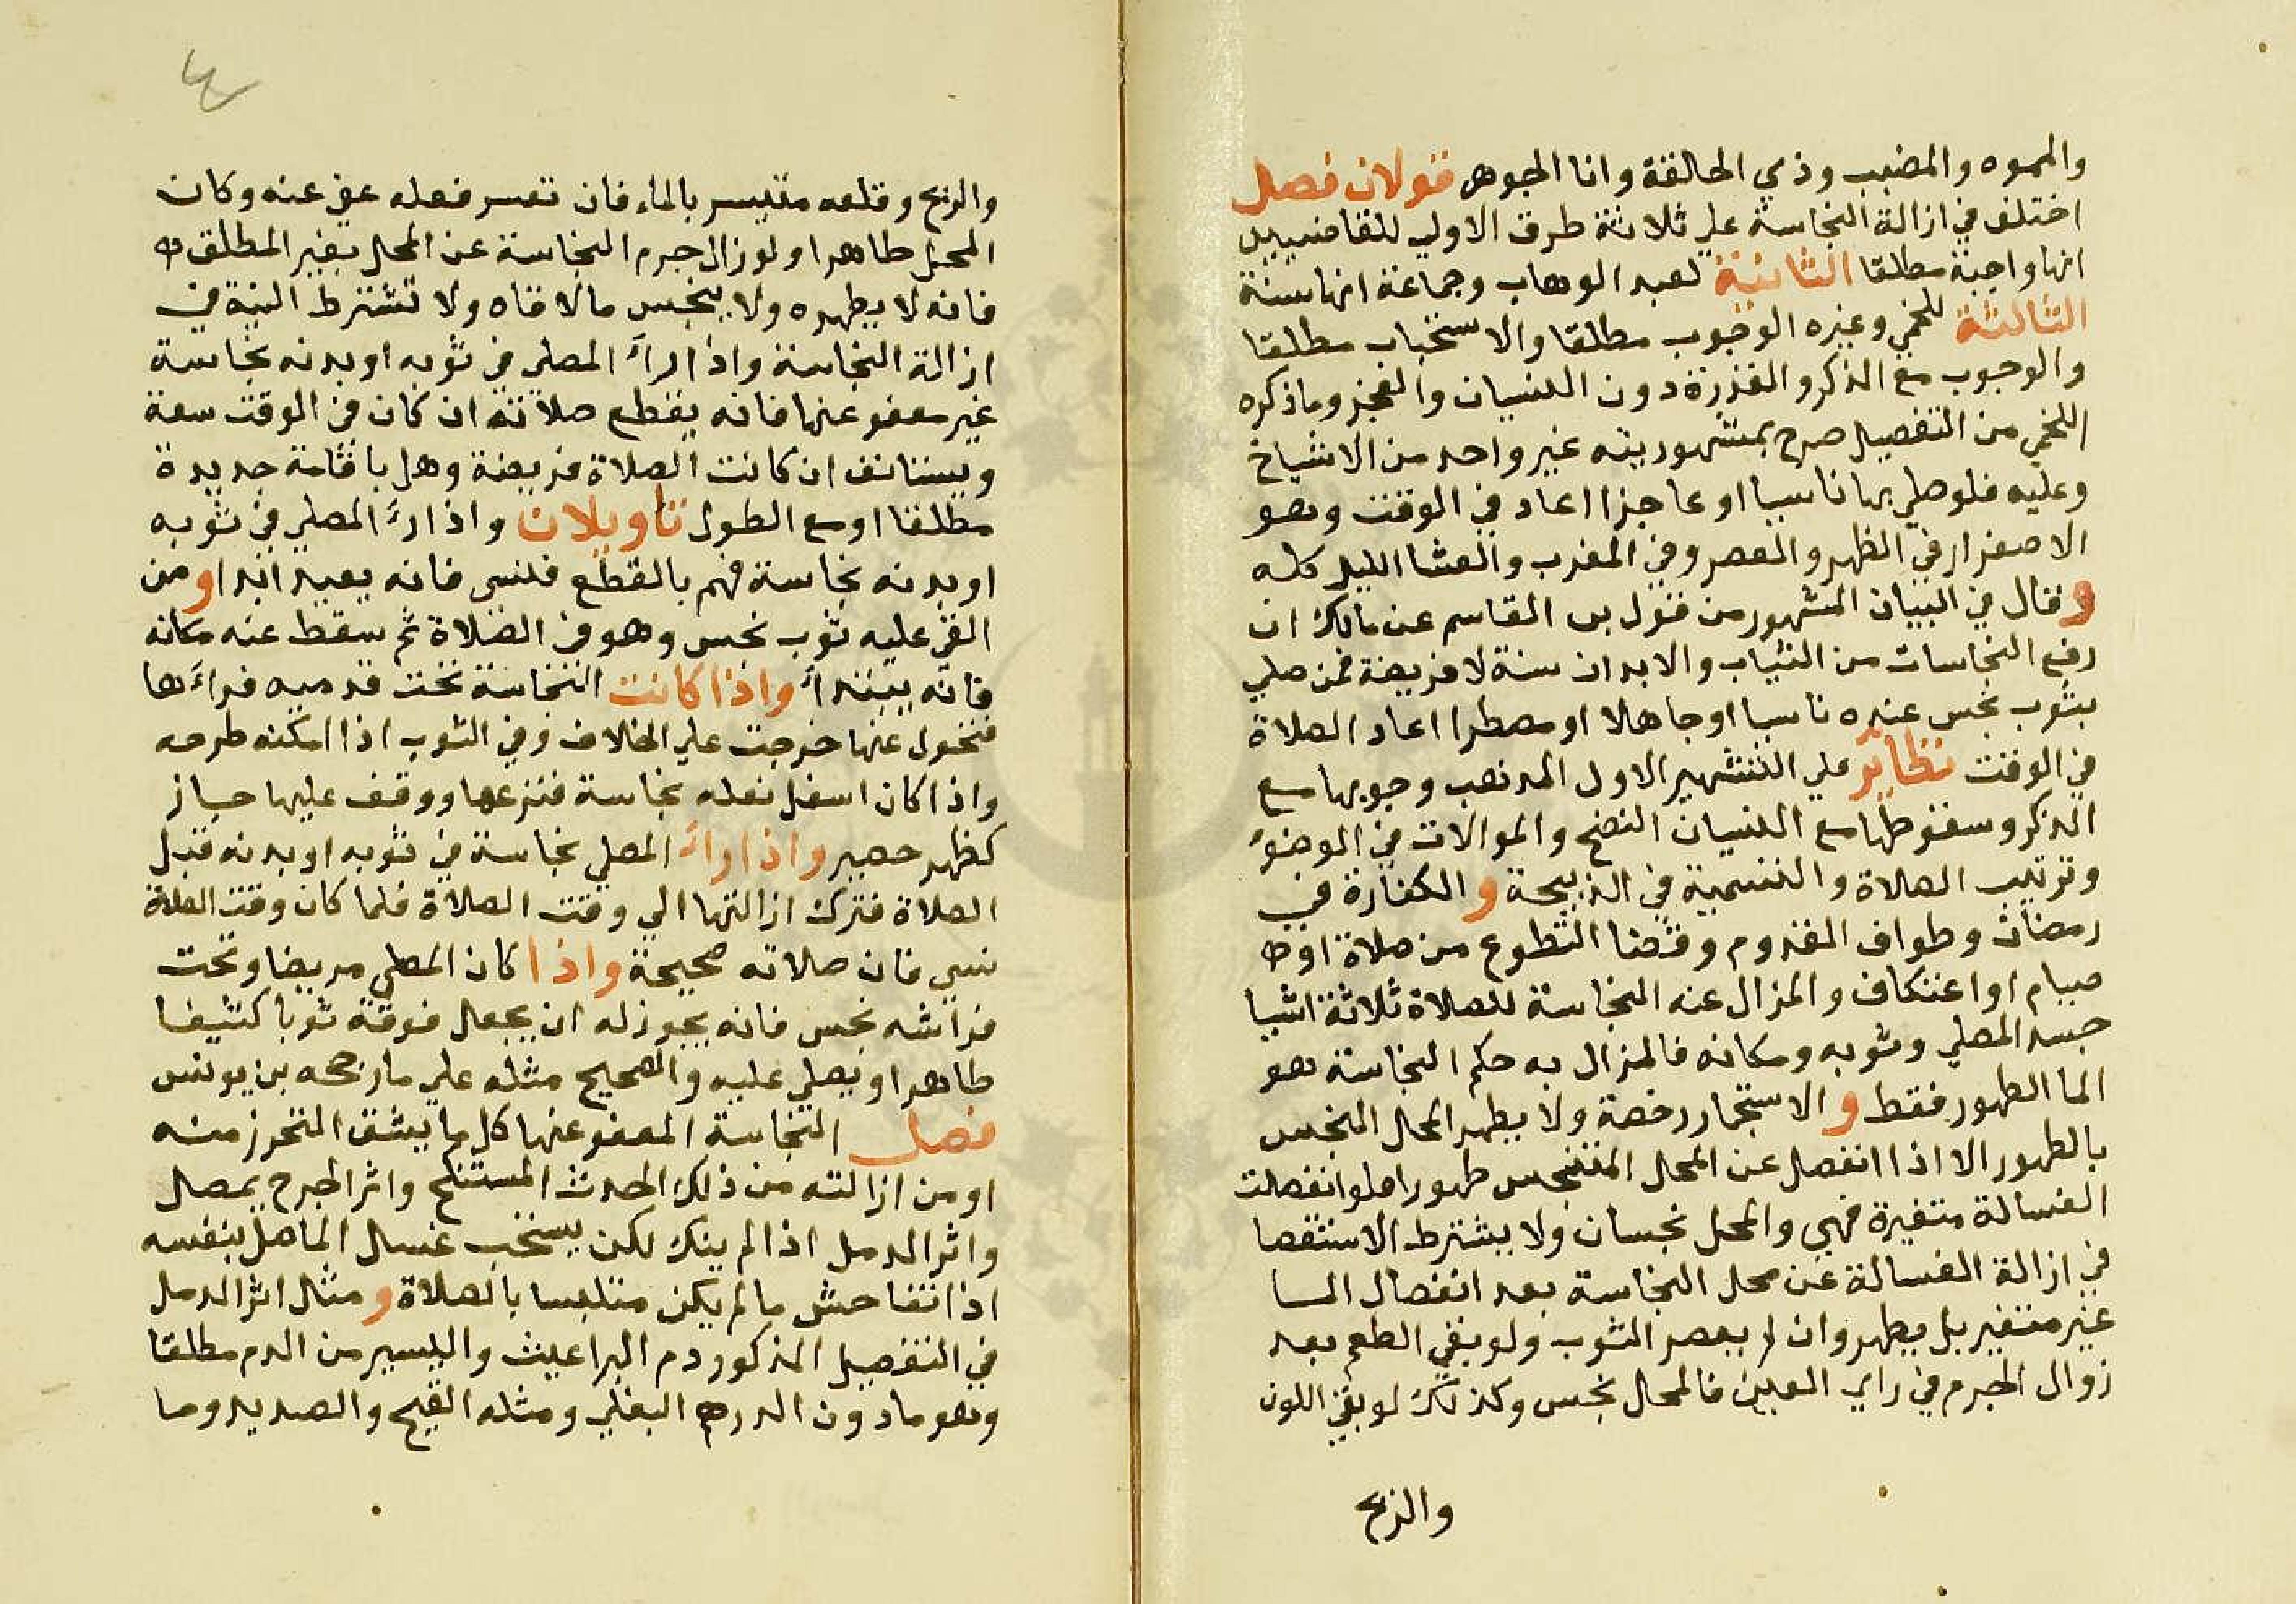 والمموه والمضبب وذي الحالقة وانا الجوهر قولان فصل
اختلف في ازالة النجاسة علي ثلاثة طرق الاولي للقاضيين
انها واجبة مطلقا الثانية لعبد الوهاب وجماعة انها سنة
الثالثة للخمي وغيره الوجوب مطلقا والاستحباب مطلقا
والوجوب مع الذكر والقدرة دون النسيان والعجز وما ذكره
اللخمي من التفصيل صرح بمشهوريته غير واحد من الاشياخ
وعليه فلو صلي بها ناسيا او عاجزا اعاد في الوقت وهو
الاصفرار في الظهر والعصر وفي المغرب والعشا الليل كله
وقال في البيان المشهور من قول بن القاسم عن مالك ان
رفع النجاسات من الثياب والابدان سنة لا فريضة فمن صلي
بثوب نجس عنده ناسيا او جاهلا او مضطرا اعاد الصلاة
في الوقت نظاير علي التشهير الاول المذهب وجوبها مع
الذكر وسقوطها مع النسيان النضح والموالات في الوضوء
وترتيب الصلاة والتسمية في الذبيحة والكفارة في
رمضان وطواف القدوم وقضا التطوع من صلاة او
صيام او اعتكاف والمزال عنه النجاسة للصلاة ثلاثة اشيا
جسد المصلي وثوبه ومكانه فالمزال به حكم النجاسة هو
الما الطهور فقط و الاستجمار رخصة ولا يطهر المحل النجس
بالطهور الا اذا انفصل عن المحل المتنجس طهورا فلو انفصلت
الغسالة متغيرة فهي والمحل نجسان ولا يشترط الاستقصا
في ازالة الغسالة عن محل النجاسة بعد انفصال الما
غير متغير بل يطهر وان لم يعصر الثوب ولو بقي الطعم بعد
زوال الجرم في راي العين فالمحل نجس وكذلك لو بقي اللون
والريح
والريح وقلعه متيسر بالماء فان تعسر فعله عفي عنه وكان
المحل طاهرا ولو زال جرم النجاسة عن المحل بغير المطلق
فانه لا يطهره ولا ينجس ما لاقاه ولا تشترط النية في
ازالة النجاسة واذا راءَ المصلي في ثوبه او بدنه نجاسة
غير معفو عنها فانه يقطع صلاته ان كان في الوقت سعة
ويستانف ان كانت الصلاة فريضة وهل باقامة جديدة
مطلقا او مع الطول تاويلان واذا راءَ المصلي في ثوبه
او بدنه نجاسة فهم بالقطع فنسي فانه يعيد ابدا ومن
القي عليه ثوب نجس وهو في الصلاة ثم سقط عنه مكانه
فانه يبتداءَ واذا كانت النجاسة تحت قدميه فراءَها
فتحول عنها خرجت علي الخلاف وفي الثوب اذا امكنه طرحه
واذا كان اسفل نعله نجاسة فنزعها ووقف عليها جاز
كظهر حصير واذا راءَ المصلي نجاسة في ثوبه او بدنه قبل
الصلاة فترك ازالتها الي وقت الصلاة فلما كان وقت الصلاة
نسي فان صلاته صحيحة واذا كان المصلي مريضا وتحت
فراشه نجس فانه يجوز له ان يجعل فوقه ثوبا كثيفا
طاهرا ويصلي عليه والصحيح مثله علي ما رجحه بن يونس
فصل النجاسة المعفو عنها كل ما يشق التحرز منه
او من ازالته من ذلك الحدث المستنكح واثر الجرح يمصل
واثر الدمل اذا لم ينك لكن يستحب غسل الماصل بنفسه
اذا تفاحش ما لم يكن متلبسا بالصلاة و مثل اثر الدمل
في التفصيل المذكور دم البراغيث واليسير من الدم مطلقا
وهو ما دون الدرهم البغلي ومثله القيح والصديد وما